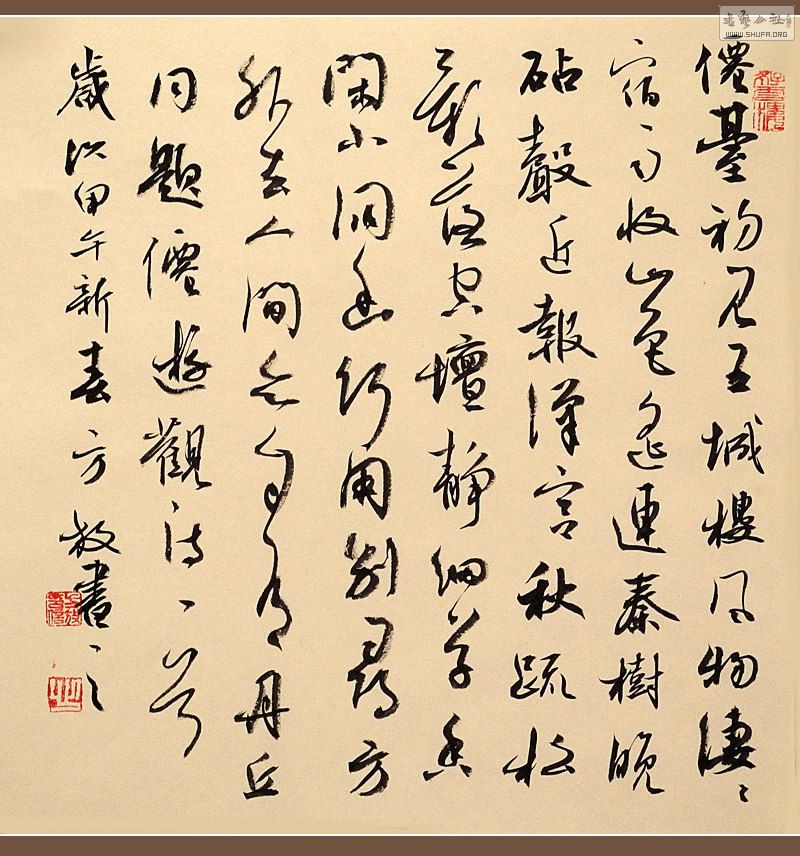 僊臺初見五城樓風物淒〻
宿雨收山色遙連秦樹晚
砧聲近報漢宮秋疏松
影落空壇靜細草香
閑小洞幽何用別尋方
外去人間亦自有丹丘
同題僊遊觀詩一首
歲次甲午新春方放書之
書藝公社
WWW.SHUFA.ORG